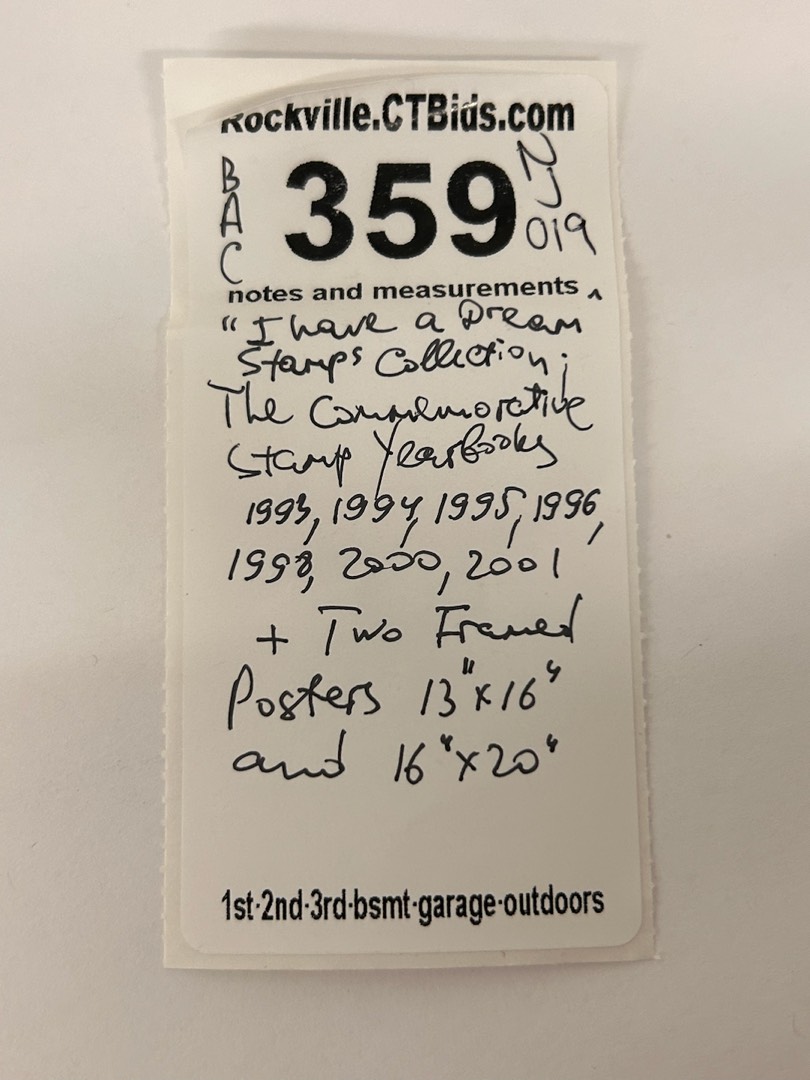 Rockville.CTBids.com
BAC
359
NJ
019
notes and measurements
"I have a Dream
Stamps Collection;
The Commemorative
Stamp Yearbooks
1993, 1994, 1995, 1996,
1998, 2000, 2001
+ Two Framed
Posters 13"x16"
and 16"x20"
1st·2nd·3rd·bsmt·garage·outdoors